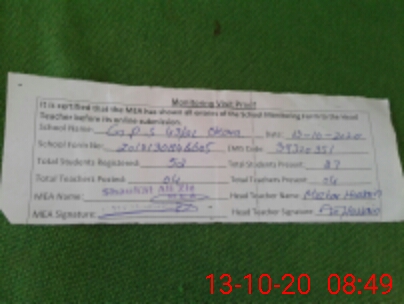 Monitoring Visit Proof
It is certified that the MEA has shown all entries of the School Monitoring Form to the Head
Teacher before its online submission.
School Name: G P S 43/01 Date: 13-10-2020
School Form No: EMIS Code: 39320351
Total Students Registered: 52 Total Students Present: 27
Total Teachers Posted: 04 Total Teachers Present: 04
MEA Name: Shaukat Ali Zia Head Teacher Name:
MEA Signature: Head Teacher Signature:
13-10-20 08:49